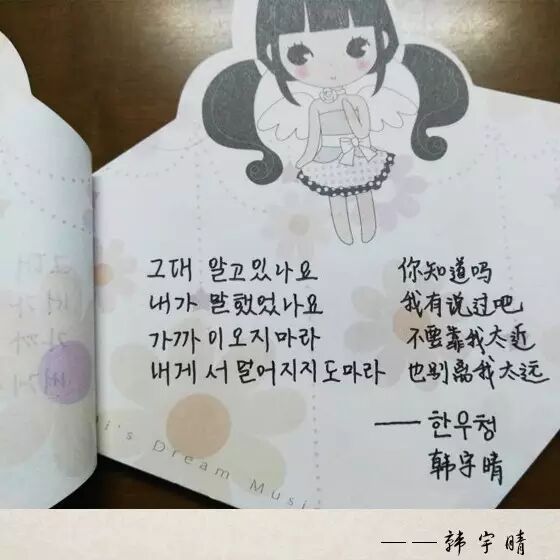 그대 알고있나요 你知道吗
내가 말했었나요 我有说过吧
가까이오지마라 不要靠我太近
내게서 멀어지지도마라 也别离我太远
——한우청
韩宇晴
i's Dream Musi
——韩宇晴